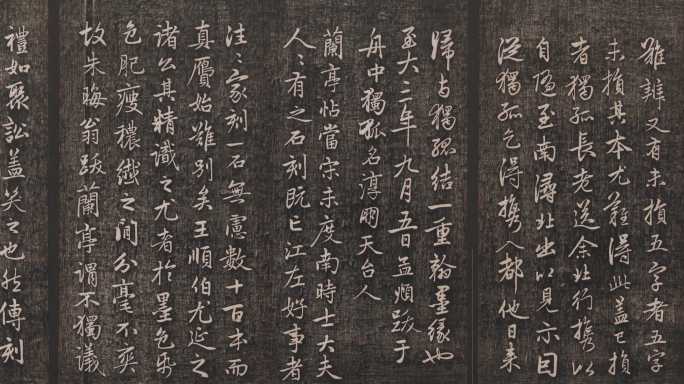 難辨又有未損五字者五字
未損其本尤難得此蓋已損
者獨孤長老送余北行攜以
自隨至南潯北出以見示因
從獨孤乞得攜入都他日来
歸与獨孤結一重翰墨緣也
至大三年九月五日孟頫跋于
舟中獨孤名淳朋天台人
蘭亭帖當宋未度南時士大夫
人〻有之石刻既亡江左好事者
往〻家刻一石無慮數十百本而
真贋始難別矣王順伯尤延之
諸公其精識之尤者於墨色紙
色肥瘦穠纖之間分毫不爽
故朱晦翁跋蘭亭謂不獨議
禮如聚訟蓋笑之也然傳刻